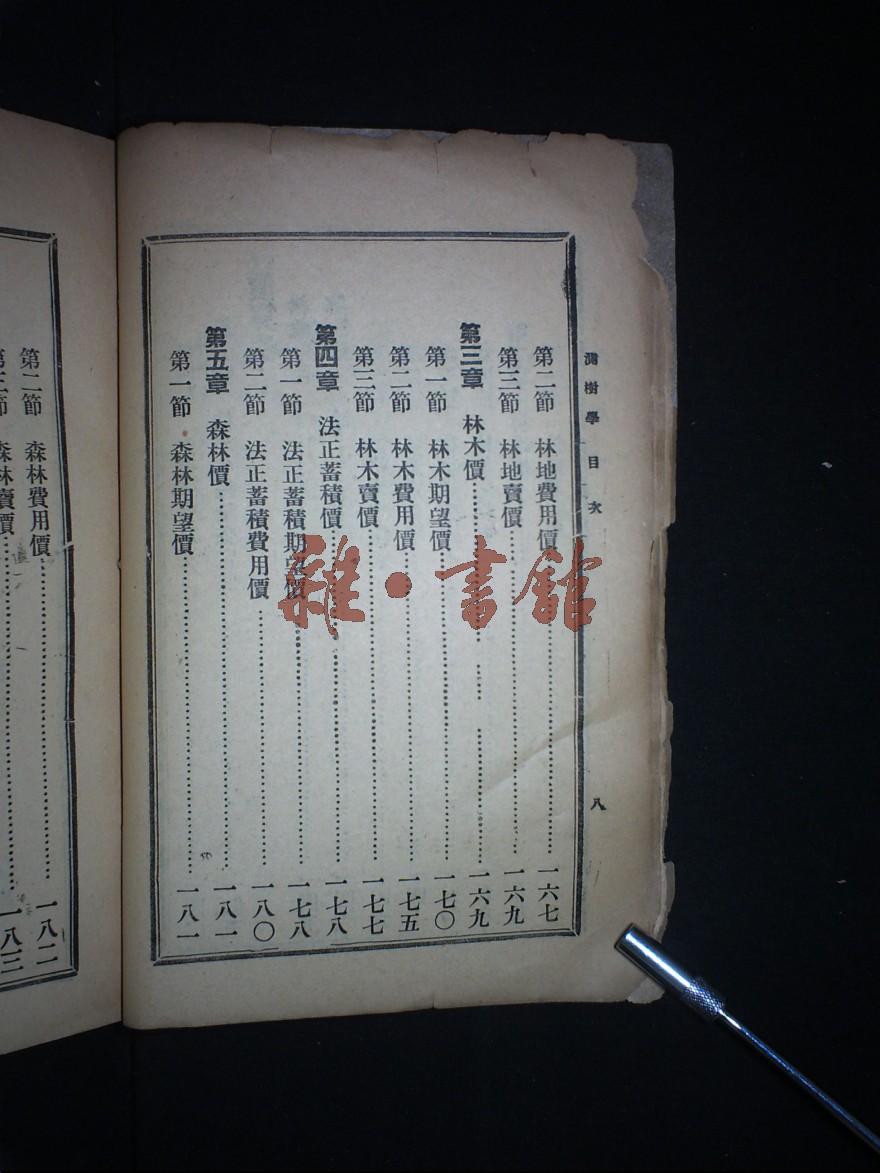 測樹學 目次 八
第二節 林地費用價 一六七
第三節 林地賣價 一六九
第三章 林木價 一六九
第一節 林木期望價 一七〇
第二節 林木費用價 一七五
第三節 林木賣價 一七七
第四章 法正蓄積價 一七八
第一節 法正蓄積期望價 一七八
第二節 法正蓄積費用價 一八〇
第五章 森林價 一八一
第一節 森林期望價 一八一
第二節 森林費用價 一八二
第三節 森林賣價 一八三
雜·書館